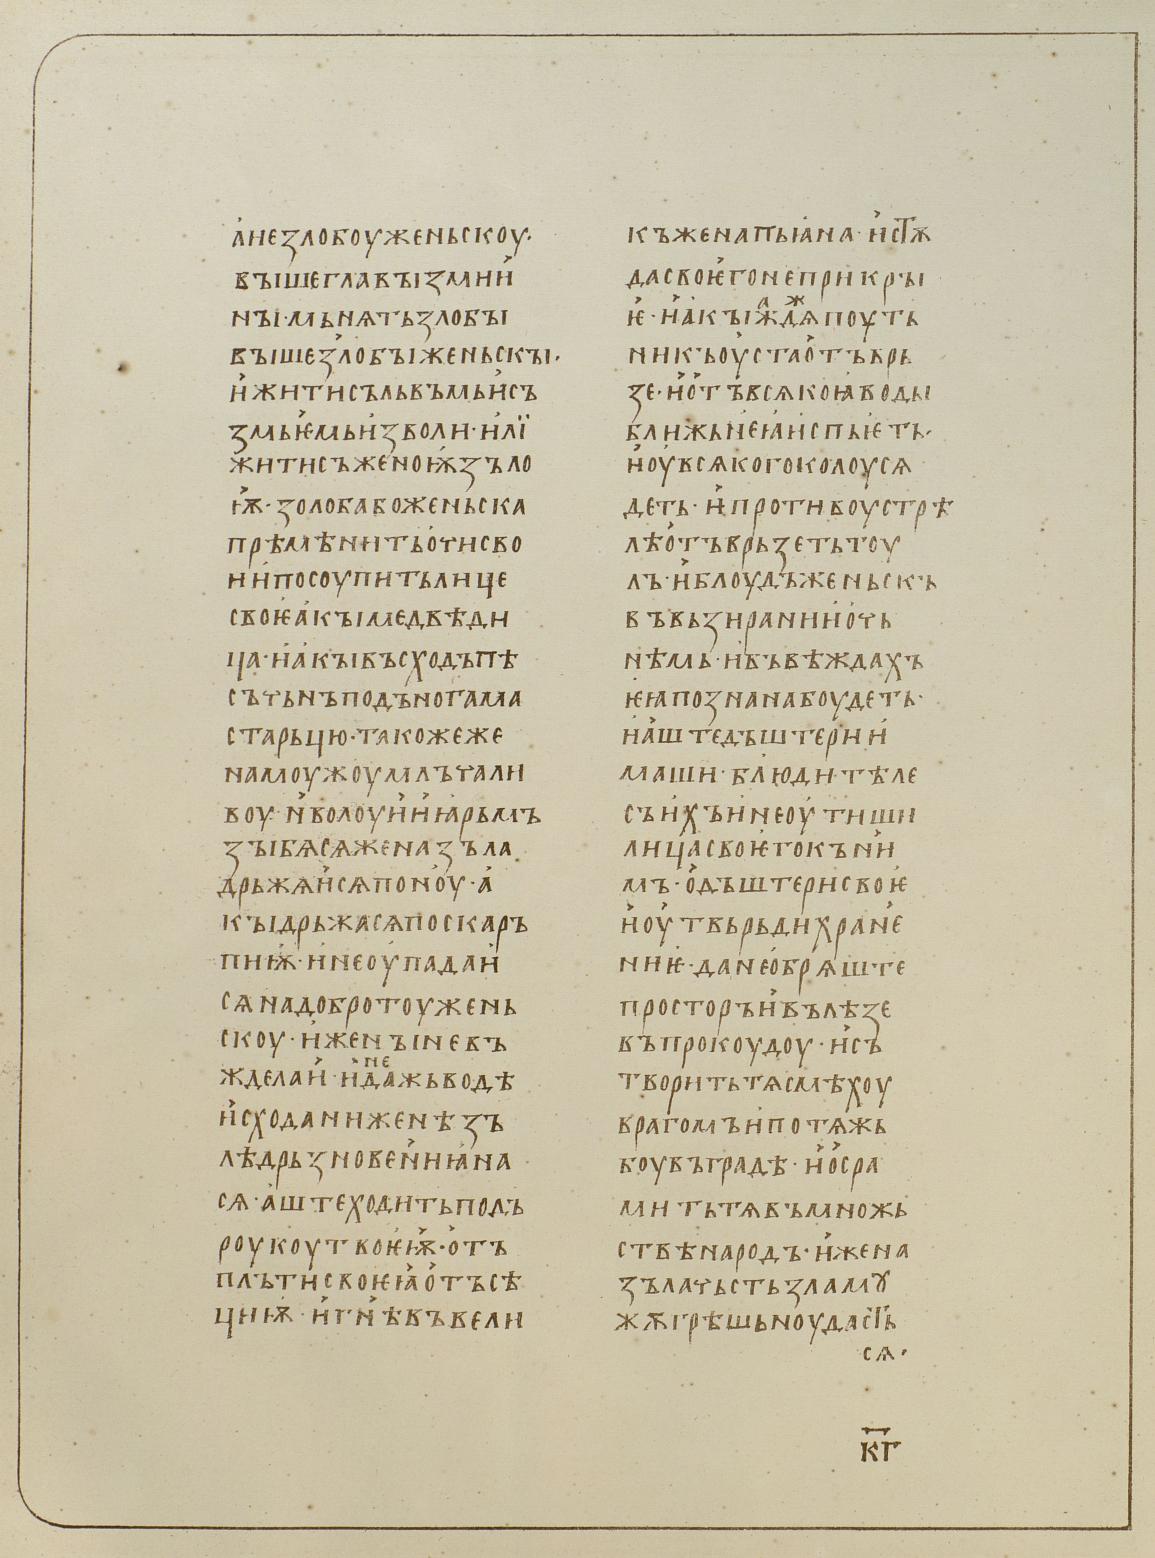 а̇незлобоуженьскоу·
въішеглавъізмии̇
нъі·мьнѧтьзлобъі
въішезлобъіженьскъі·
и̇житисъльвъмьи̇съ
змьѥ̇мьи̇зволи·и̇лї
житисъженоѭ̇зъло
ѭ̇·золобабоженьска
прѣмѣнитьо̇чисво
и̇и̇посоупитьлице
своѥ̇а̇къімедвѣди
ца·и̇а̇къівъсходъпѣ
съчьнъподъногама
старьцю·такожеже
намоужоумлъчали
воу·и̇волоуи̇и̇ꙗ̇рьмъ
зъібѧсѧженазъла
дрьжѧи̇сѧпоно̇у·а̇
къідрьжасѧпоскаръ
пиѭ̇·и̇неоу̇падаи̇
сѧнадобротоужень
скоу·и̇женъіневъ
жделаи̇·и̇недажьводѣ
и̇сходанижѣнѣзъ
лѣдрьзновении̇ꙗ̇на
сѧ·а̇штеходитьподъ
роукоутвоѥ̇ѭ̇·о̇тъ
плътисвоѥ̇ꙗ̇о̇тъсѣ
циѭ̇·и̇гнѣвъвели
къженапьꙗ̇на·и̇ст҃ѧ
дасвоѥ̇гонеприкръі
ѥ̇·и̇а̇къіжаждѧпоуть
никъоу̇стао̇тъврь
зе·и̇о̇тъвсѧкоꙗ̇водъі
ближьнѥ̇ꙗ̇и̇спьѥ̇ть·
и̇оу̇всѧкогоколоусѧ
деть·и̇противоустрѣ
лѣо̇тъврьзетьтоу
лъ·и̇блоудъженьскъ
въвьзираниио̇чь
нѣмь·и̇въвѣждахъ
ѥ̇ꙗ̇познанабоудеть·
и̇а̇штедъштерии̇
маши·блюдитѣле
съи̇хъи̇неоу̇тиши
лицасвоѥ̇гокъни̇и
мъ·о̇дъштерисвоѥ̇
и̇оу̇твьрьдихране
ниѥ̇·данео̇брѧште
просторъи̇вълѣзе
въпрокоудоу·и̇съ
творитьтѧсмѣхоу
врагомъи̇потѧжь
боувъградѣ·и̇о̇сра
митьтѧвъмножь
ствѣнародъ·и̇жена
зълачьстьзламꙋ
жѫгрѣшьноудасть
сѧ·
к҃г